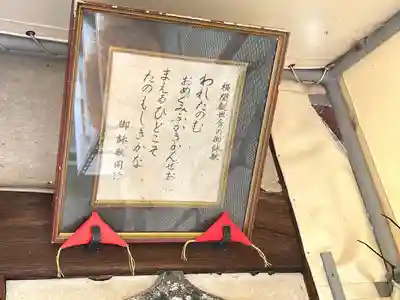 観世音の御詠歌
われたのむ
おめぐみふかきかんぜおん
まえるひとこそ
たのもしきかな
御詠歌同行